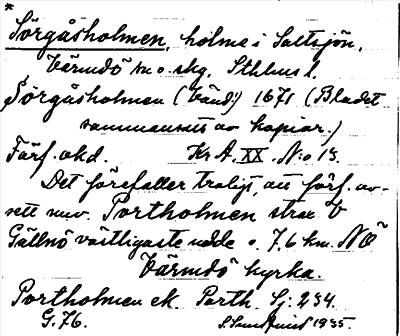 *
Sörgåsholmen, holme i Saltsjön,
Värmdö sn o. skg. Sthlms l.
Sörgåsholmen (Vänd:) 1671 (Bladet
sammansatt av kopior.)
Färf. okd. Kr A, XX. N:o 13.
Det förefaller troligt, att förf. av-
sett nuv. Portholmen strax V
Gällnö västligaste udde o. 7,6 km. NÖ
Värmdö kyrka.
Portholmen ek. Parth. Sj: 234.
G. 76. 1935.